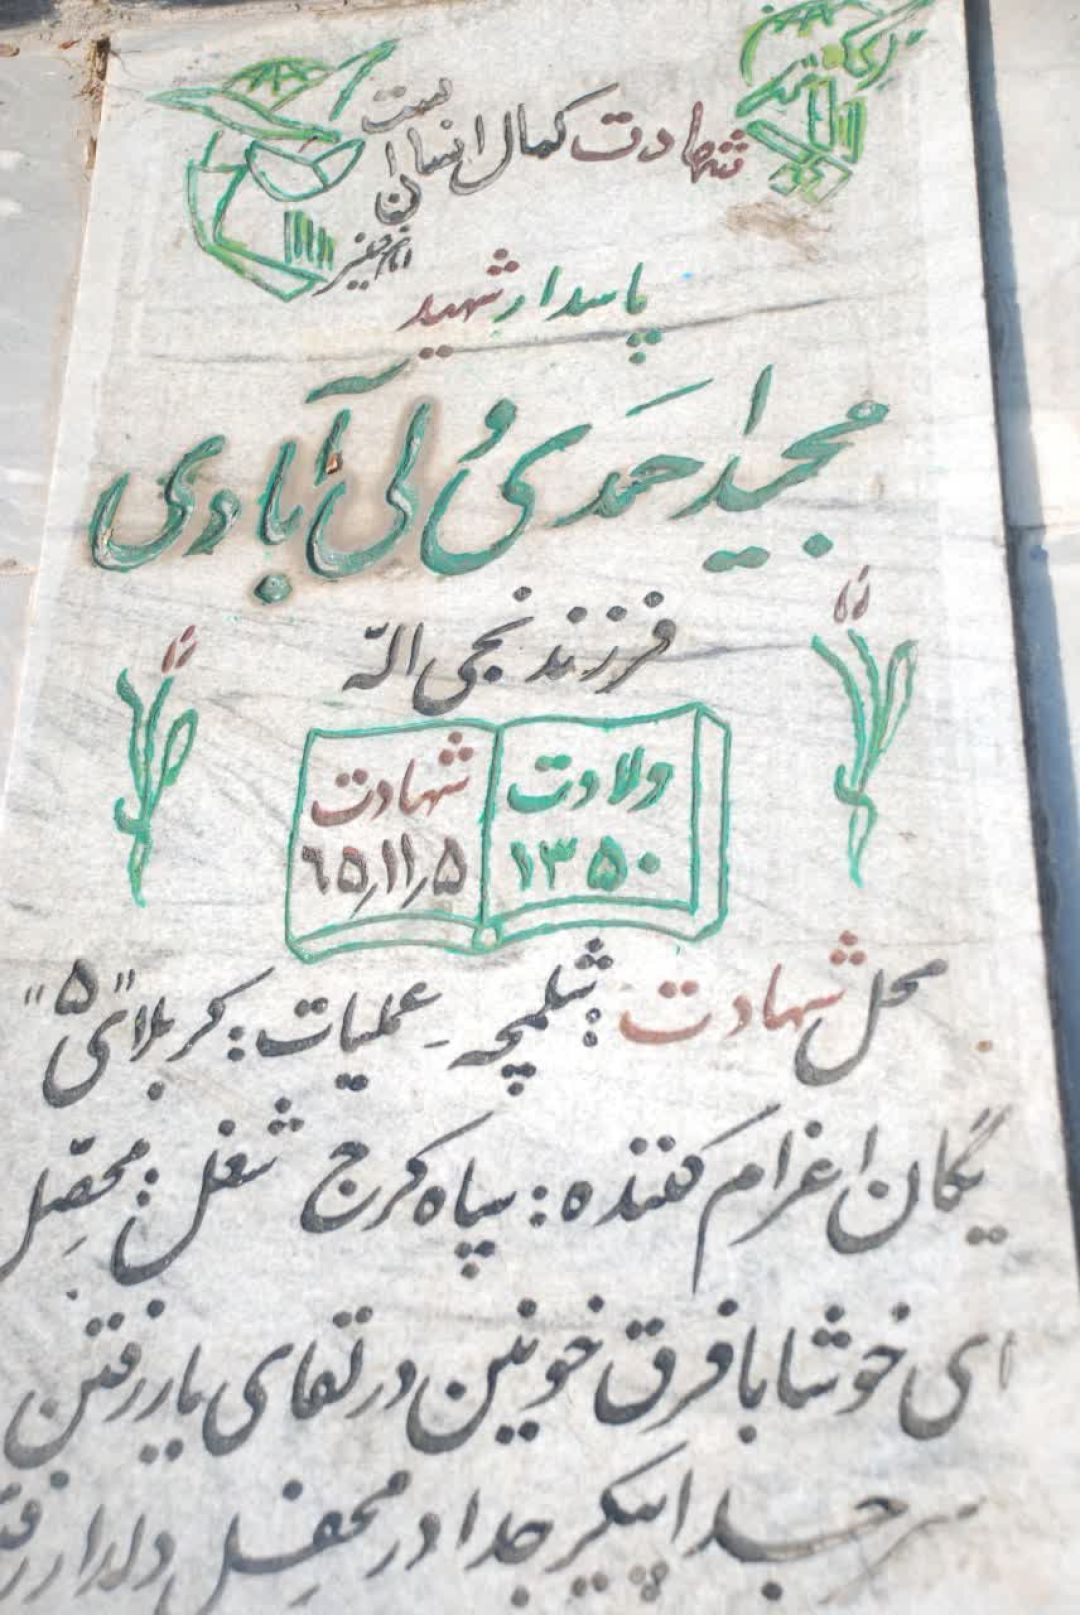 شهادت کمال انسان است
امام خمینی
پاسدار شهید
مجید احمدی ولی آبادی
فرزند نجی الله
ولادت
۱۳۵۰
شهادت
۶۵٫۱۱٫۵
محل شهادت: شلمچه عملیات: کربلای "۵"
یگان اعزام کننده: سپاه کرج شغل: محصل
ای خوشا با فرق خونین در لقای یار رفتن
سر جدا پیکر جدا در محفل دلدار